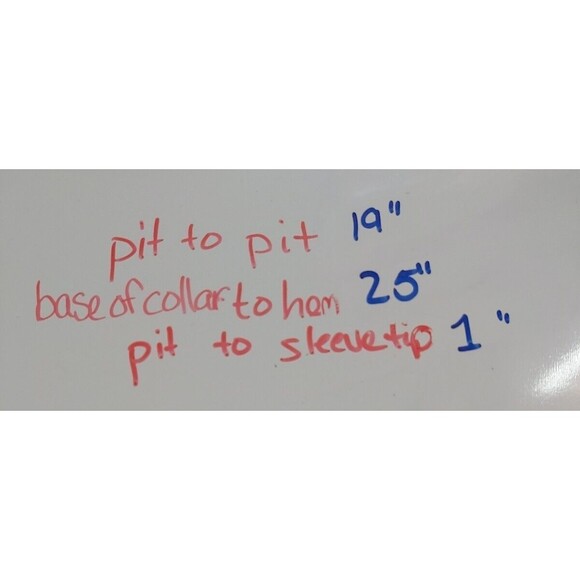 pit to pit 19"
base of collar to hem 25"
pit to sleeve tip 1"